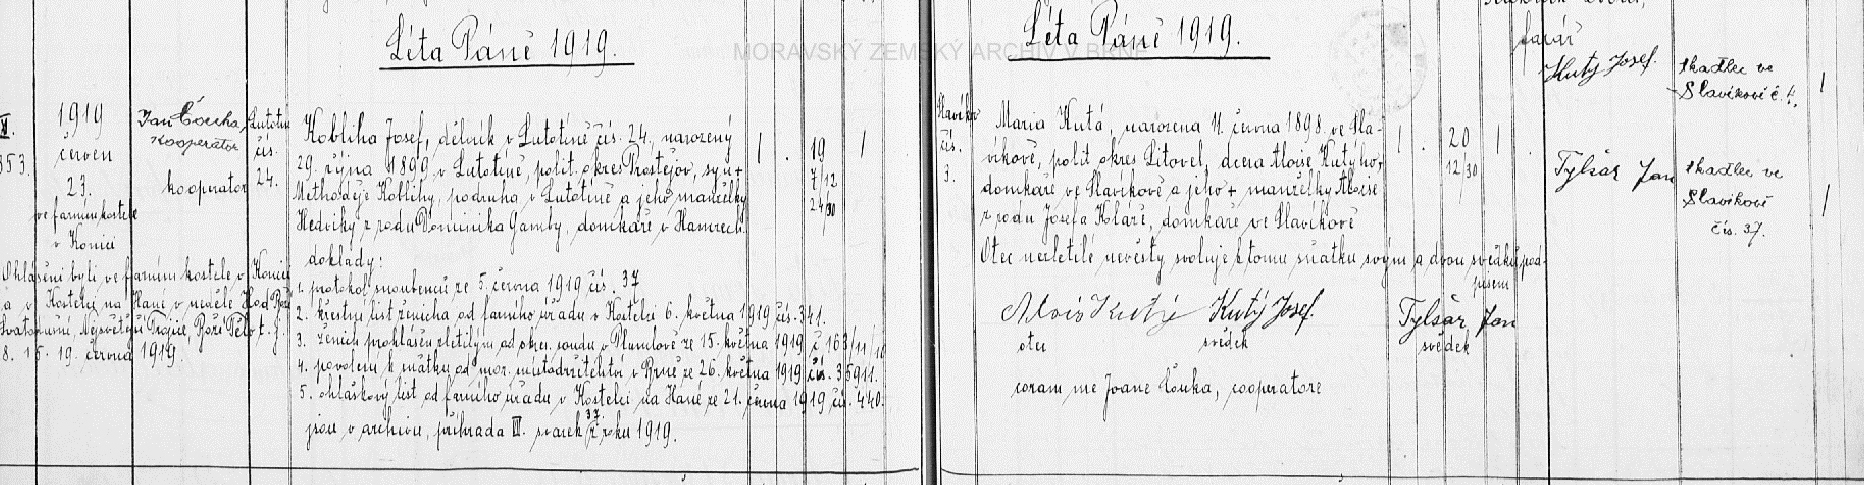 Léta Páně 1919.
MORAVSKÝ ZEMSKÝ ARCHIV V BRNĚ
Léta Páně 1919.
farář
Kutý Josef.
tkadlec ve
Slavíkově č. 4.
1
353.
1919
červen
23.
ve farním kostele
v Konici
Jan Čouka,
kooperátor
kooperator
Lutotín
čís.
24.
Kobliha Josef, dělník v Lutotíně čís. 24, narozený
29. října 1899 v Lutotíně, polit. okres Prostějov, syn +
Methoděje Koblihy, podruha v Lutotíně a jeho manželky
Hedviky z rodu Dominika Gamby, domkaře v
doklady:
1. protokol snoubenců ze 5. června 1919 čís. 37
2. křestní list ženicha od farního úřadu v Kostelci 6. května 1919 čís. 341.
3. ženich prohlášen zletilým od okres. soudu v Plumlově ze 15. května 1919 č 163/11/18
4. povolení k sňatku od mor. místodržitelství v Brně ze 26. května 1919 čís. 35911.
5. ohláškový list od farního úřadu v Kostelci na Hané ze 21. června 1919 čís. 440.
jsou v archivu, přihrada III. svazek 37 z roku 1919.
1 . 19 1
7/12
24/30
Ohlášeni byli ve farním kostele v Konici
a v Kostelci na Hané v neděle Hod Boží
Svatodušní, Nejsvětější Trojice, Boží Tělo t. j.
8. 15. 19. června 1919.
Slavíkov
čís.
3.
Maria Kutá, narozena 11. června 1898 ve Sla-
víkově, polit okres Litovel, dcera Aloise Kutýho,
domkaře ve Slavíkově a jeho + manželky Aloisie
z rodu Josefa Koláře, domkaře ve Slavíkově
Otec nezletilé nevěsty svoluje k tomu sňatku svým a dvou svědků pod-
pisem
Alois Kutý Kutý Josef. Tylšar Jan
otec svědek svědek
coram me Joane Čouka, cooperatore
1 . 20 1 .
12/30
Tylšar Jan
tkadlec ve
Slavíkově
čís. 37.
1